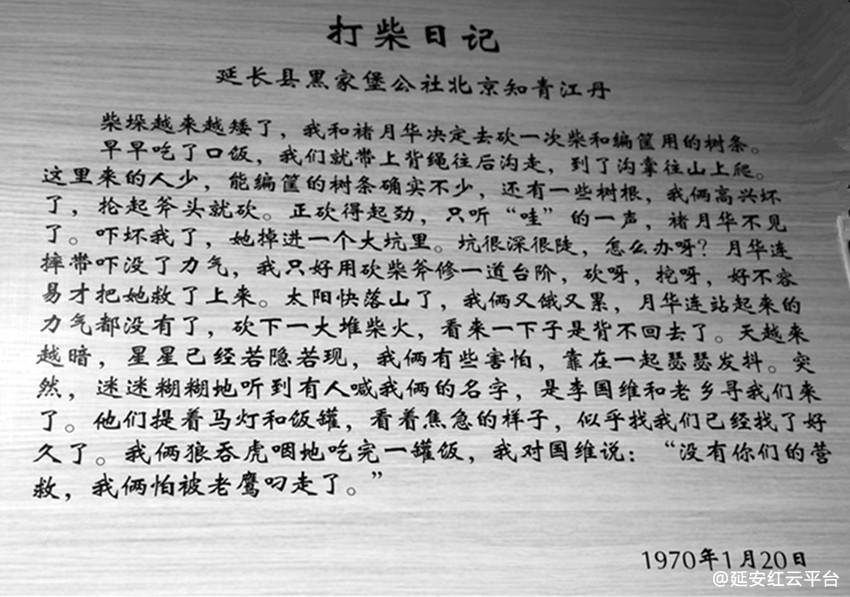 打柴日记
延长县黑家堡公社北京知青江丹
柴垛越来越矮了，我和褚月华决定去砍一次柴和编筐用的树条。
早早吃了口饭，我们就带上背绳往后沟走，到了沟掌往山上爬。
这里来的人少，能编筐的树条确实不少，还有一些树根，我俩高兴坏
了，抡起斧头就砍。正砍得起劲，只听“哇”的一声，褚月华不见
了。吓坏我了，她掉进一个大坑里。坑很深很陡，怎么办呀？月华连
摔带吓没了力气，我只好用砍柴斧修一道台阶，砍呀，挖呀，好不容
易才把她救了上来。太阳快落山了，我俩又饿又累，月华连站起来的
力气都没有了，砍下一大堆柴火，看来一下子是背不回去了。天越来
越暗，星星已经若隐若现，我俩有些害怕，靠在一起瑟瑟发抖。突
然，迷迷糊糊地听到有人喊我俩的名字，是李国维和老乡寻我们来
了。他们提着马灯和饭罐，看着焦急的样子，似乎找我们已经找了好
久了。我俩狼吞虎咽地吃完一罐饭，我对国维说：“没有你们的营
救，我俩怕被老鹰叼走了。”
1970年1月20日
@延安红云平台